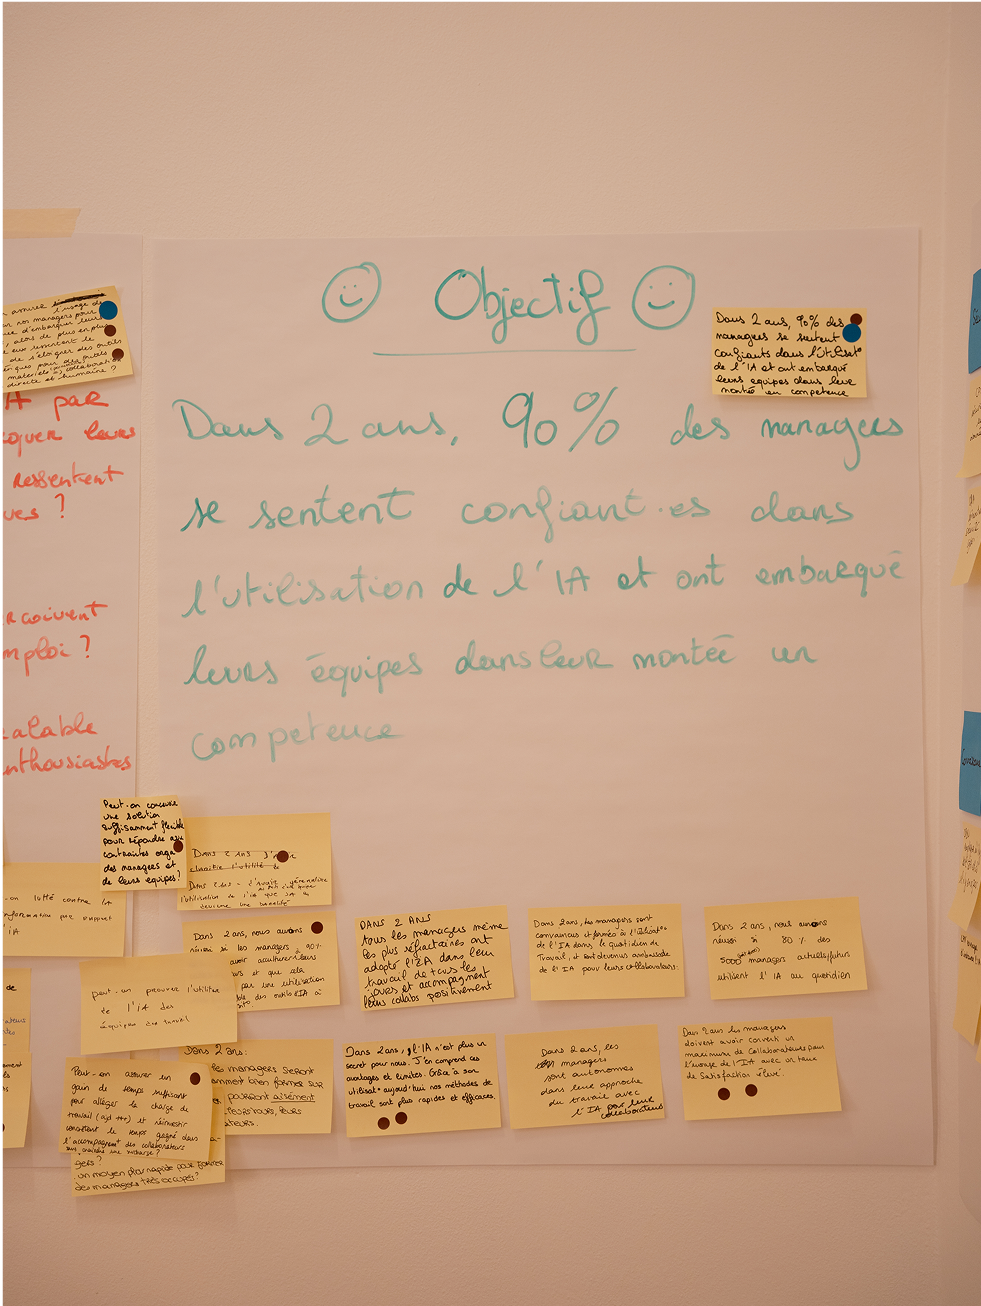 Objectif
Dans 2 ans, 90% des managers
se sentent confiant·es dans
l'utilisation de l'IA et ont embarqué
leurs équipes dans leur montée en
competence
Dans 2 ans, 90% des
managers se sentent
confiants dans l'utilisat°
de l'IA et ont embarqué
leurs équipes dans leur
montée en competence
l'usage de
nos managers pour
d'embarquer leurs
alors de plus en plus
eux ressentent le
de s'éloigner des outils
pour des outils
collaboration
directe et humaine ?
IA par
quer leurs
ressentent
ues ?
rcoivent
mploi ?
alable
nthousiastes
Peut-on concevoir
une solution
suffisamment flexible
pour répondre aux
contraintes orga
des managers et
de leurs équipes?
Dans 2 ans j'
l'utilité
Dans 2 ans
l'utilisation de l'IA que
devienne une
on lutté contre la
par rapport
IA
Dans 2 ans, nous aurons
réussi si les managers à 90%
avoir acculturer leurs
et que cela
par une utilisation
des outils IA à
DANS 2 ANS
tous les managers même
les plus réfractaires ont
adopté l'IA dans leur
travail de tous les
jours et accompagnent
leurs collabs positivement
Dans 2 ans, les managers sont
convaincus et formés à l'utilisat°
de l'IA dans le quotidien de
Travail, et sont devenus ambassade
de l'IA pour leurs collaborateurs.
Dans 2 ans, nous aurons
réussi si 80% des
5000 managers actuels/futurs
utilisent l'IA au quotidien
de
peut-on prouver l'utilité
de l'IA des
équipes de travail
Dans 2 ans:
les managers seront
amment bien formé sur
pourront aisément
leurs
ateurs.
Dans 2 ans, l'IA n'est plus un
secret pour nous. J'en comprend les
avantages et limites. Grâce à son
utilisat° aujourd'hui nos méthodes de
travail sont plus rapides et efficaces.
Dans 2 ans, les
managers
sont autonomes
dans leur approche
du travail avec
l'IA pour leur
collaborateurs
Dans 2 ans les managers
doivent avoir converti un
maximum de Collaborateurs dans
l'usage de l'IA avec un taux
de Satisfaction élevé.
Peut-on assurer un
gain de temps suffisant
pour alléger la charge de
travail (ajd +++) et réinvestir
le temps gagné dans
l'accompagnemt des collaborateurs
gers?
un moyen plus rapide pour former
des managers très occupés?